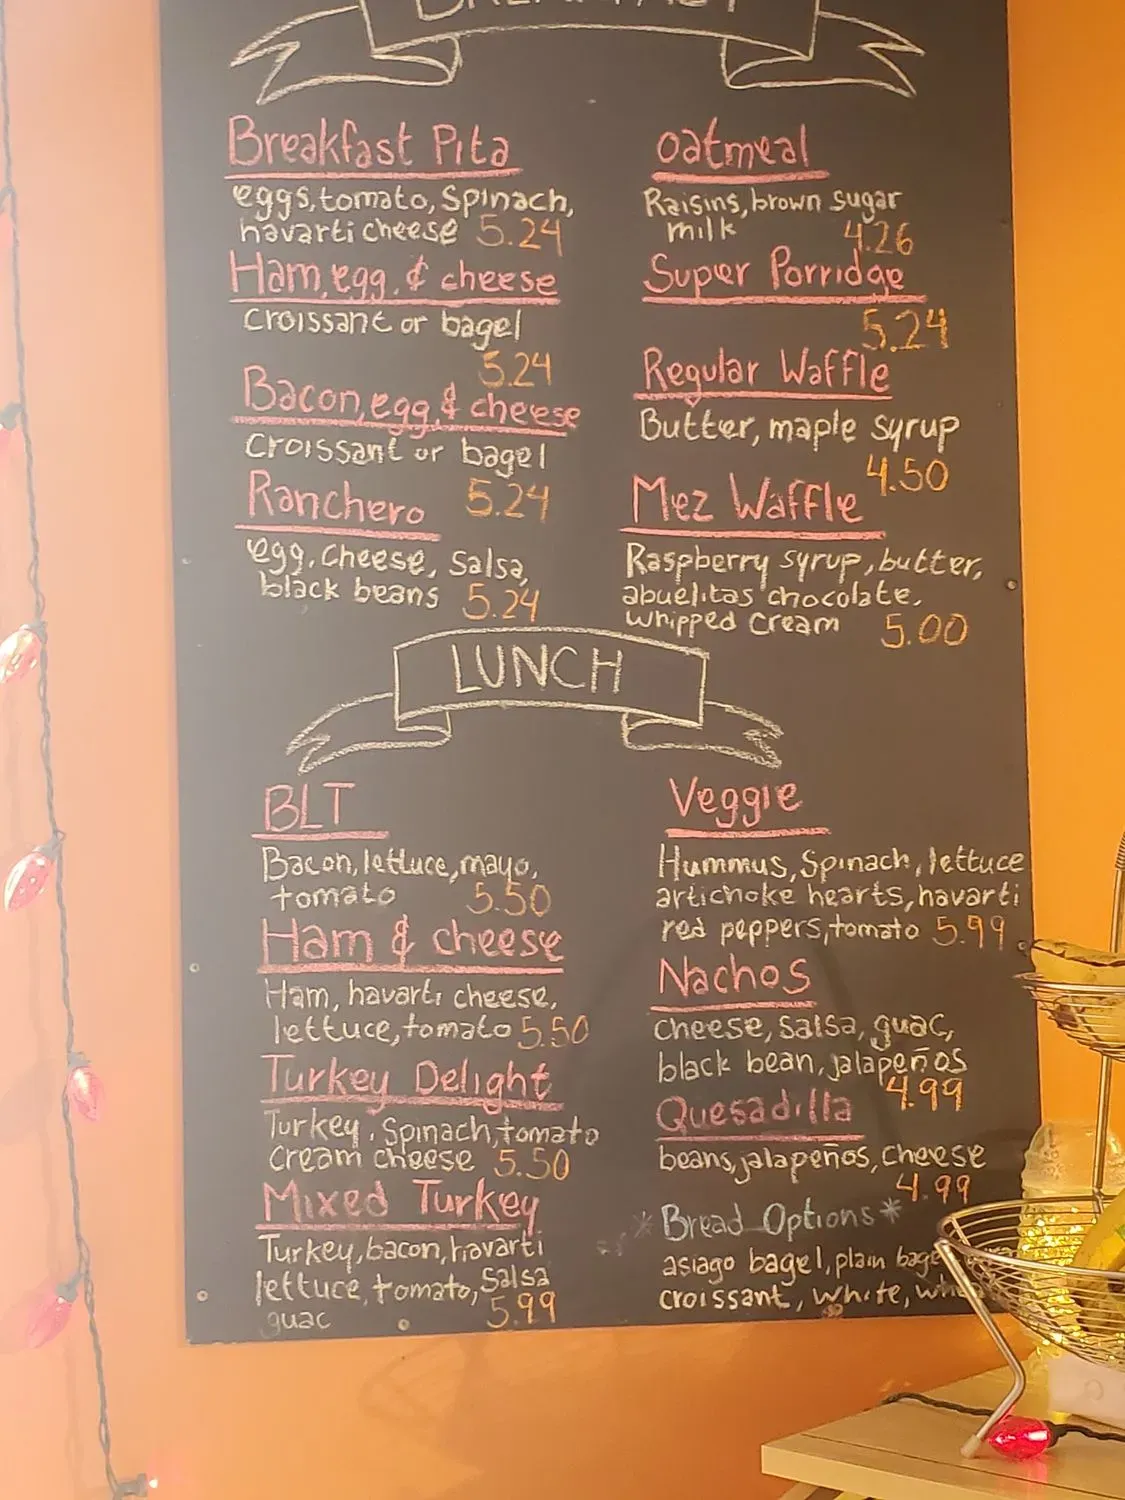 BREAKFAST
Breakfast Pita
eggs, tomato, Spinach,
havarti cheese 5.24
Ham, egg, & cheese
Croissant or bagel
5.24
Bacon, egg, & cheese
Croissant or bagel
5.24
Ranchero
egg, Cheese, Salsa,
black beans 5.24
oatmeal
Raisins, brown sugar
milk 4.26
Super Porridge
5.24
Regular Waffle
Butter, maple syrup
4.50
Mez Waffle
Raspberry syrup, butter,
abuelitas chocolate,
whipped cream 5.00
LUNCH
BLT
Bacon, lettuce, mayo,
tomato 5.50
Ham & cheese
Ham, havarti cheese,
lettuce, tomato 5.50
Turkey Delight
Turkey, Spinach, tomato
cream cheese 5.50
Mixed Turkey
Turkey, bacon, havarti
lettuce, tomato, Salsa
guac 5.99
Veggie
Hummus, Spinach, lettuce
artichoke hearts, havarti
red peppers, tomato 5.99
Nachos
cheese, salsa, guac,
black bean, jalapeños
4.99
Quesadilla
beans, jalapeños, cheese
4.99
*Bread Options*
asiago bagel, plain
croissant, white,